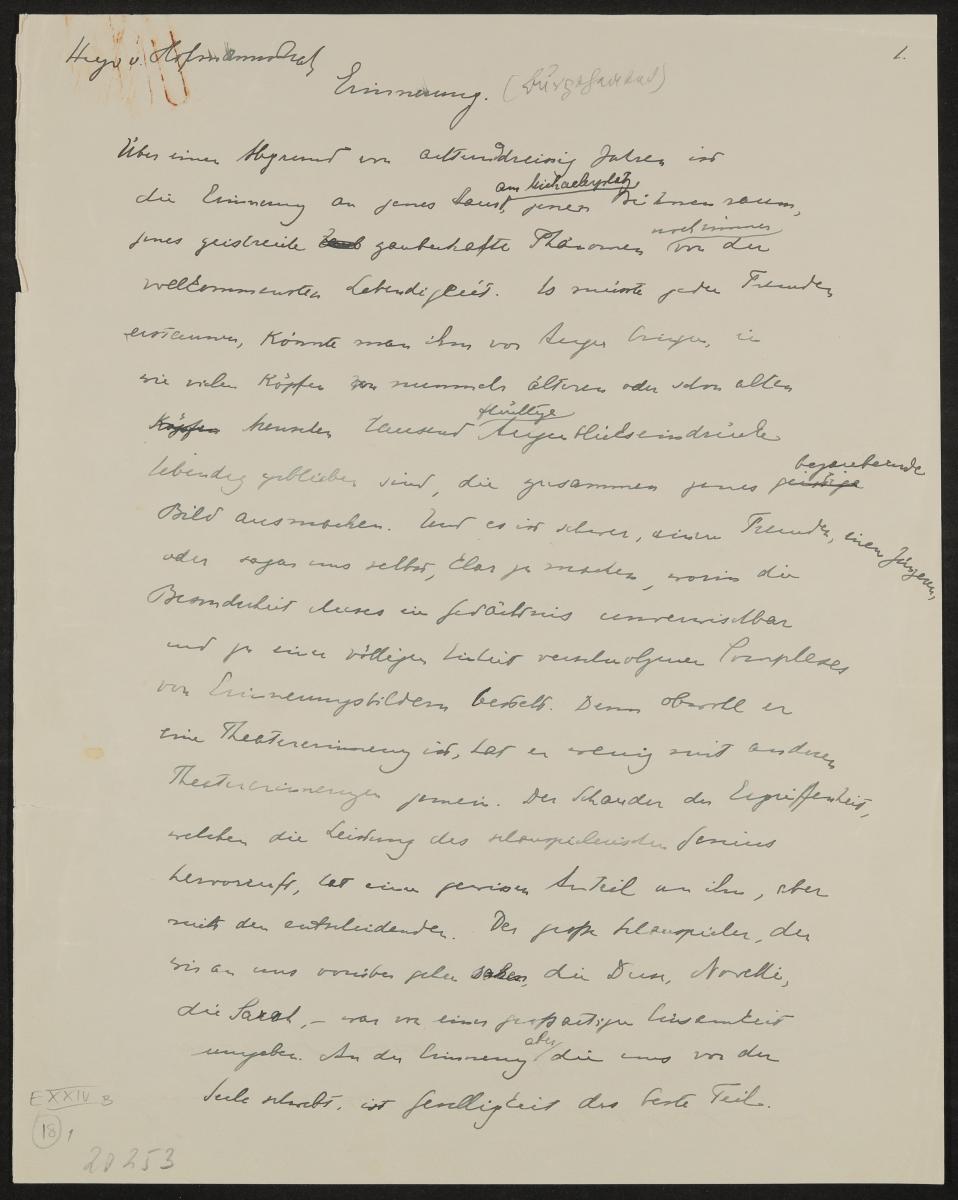 Hugo v. Hofmannsthal
1.
Erinnerung. (Burgtheater)
Über einen Abgrund von achtunddreissig Jahren ist
am Michaelerplatz
die Erinnerung an jenes Haus, jenen Bühnenraum,
noch immer
jenes geistreiche zauberhafte Phänomen von der
vollkommensten Lebendigkeit. Es müsste jeden Fremden
erstaunen, könnte man ihm vor Augen bringen, in
wie vielen Köpfen von nunmehr älteren oder schon alten
flüchtige
Köpfen Menschen tausend Augenblickseindrücke
bezaubernde
lebendig geblieben sind, die zusammen jenes geistige
Bild ausmachen. Und es ist schwer, einem Fremden, einem Jüngeren,
oder sogar uns selbst, klar zu machen, worin die
Besonderheit dieses im Gedächtnis unverwischbar
und zu einer völligen Einheit verschmolzenen Complexes
von Erinnerungsbildern besteht. Denn obwohl er
eine Theatererinnerung ist, hat er wenig mit anderen
Theatererinnerungen gemein. Der Schauder der Ergriffenheit,
welchen die Leistung des schauspielerischen Genius
hervorruft, hat einen gewissen Anteil an ihm, aber
nicht den entscheidenden. Der große Schauspieler, den
wir an uns vorüber gehen sahen, die Duse, Novelli,
die Sarah, – war von einer großartigen Einsamkeit
aber
umgeben. An der Erinnerung die uns vor der
Seele schwebt, ist Geselligkeit das beste Teil.
E XXIV B
18 1
20253